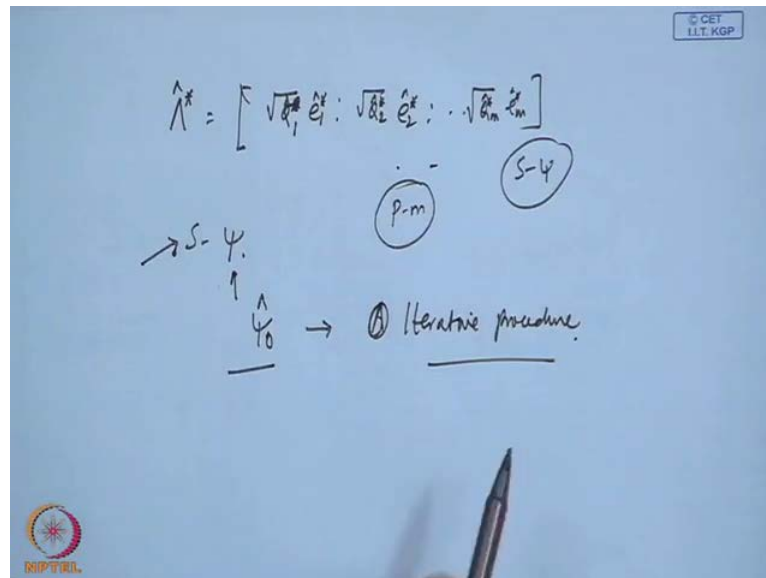 © CET
I.I.T. KGP
Λ̂* = [ √θ̂₁* ê₁* : √θ̂₂* ê₂* : .. √θ̂ₘ* êₘ* ]
S-ψ
p-m
→ S - ψ.
↑
ψ̂₀ → Iterative procedure.
NPTEL